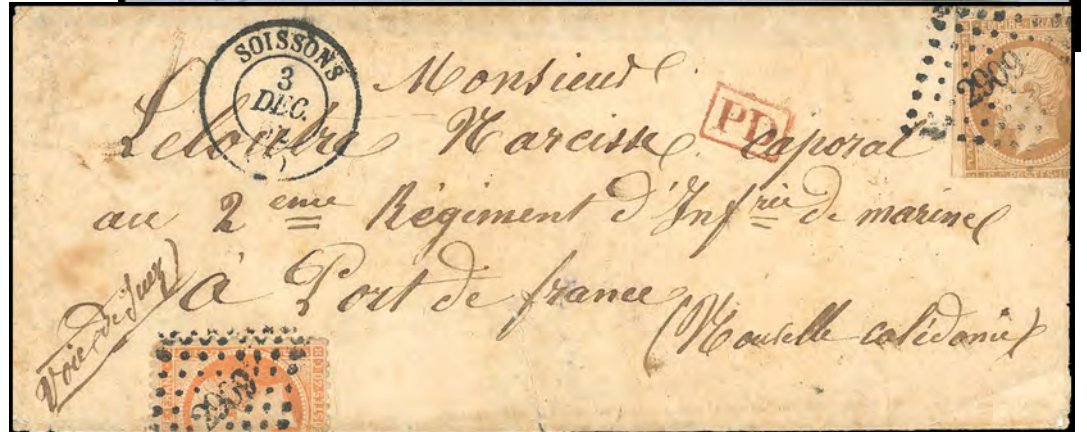 SOISSONS
3
DEC.
2909
PD
Monsieur
Narcisse Caporal
au 2 eme Régiment d'Infrie de marine
à Port de france
(Nouvelle calédonie)
Voie de Suez
2909